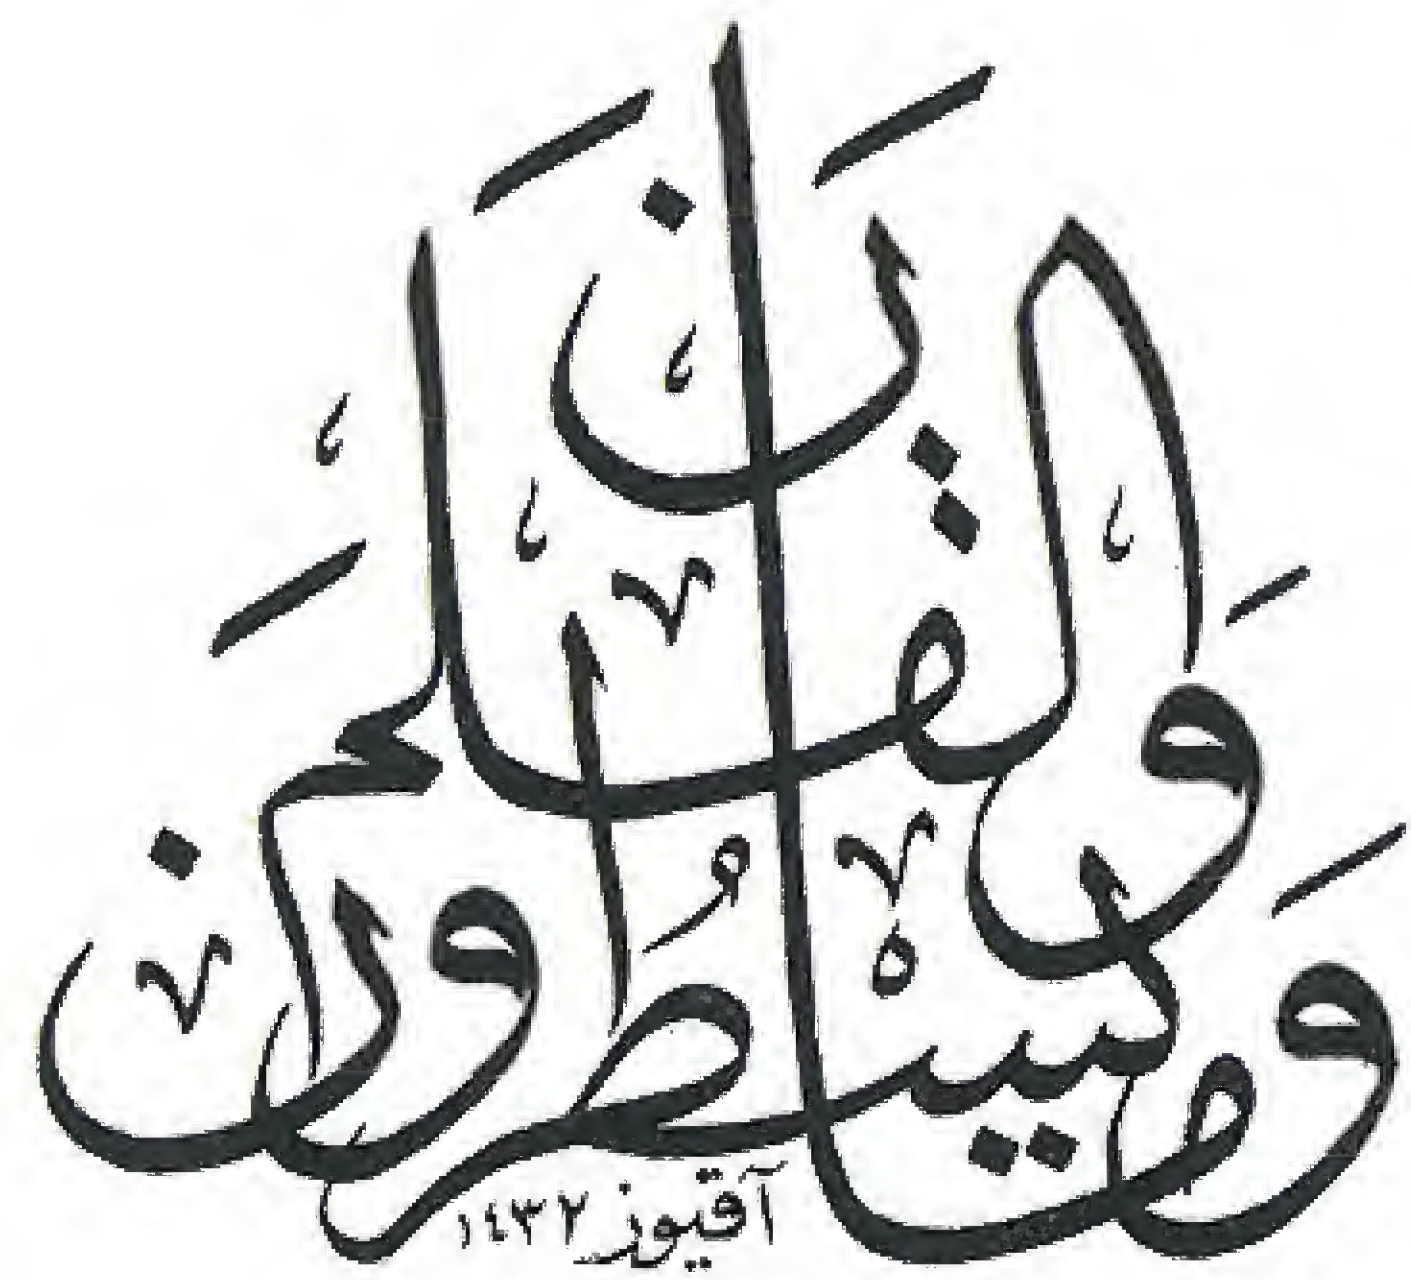 ن والقلم وما يسطرون
آقيوز ١٤٣٢